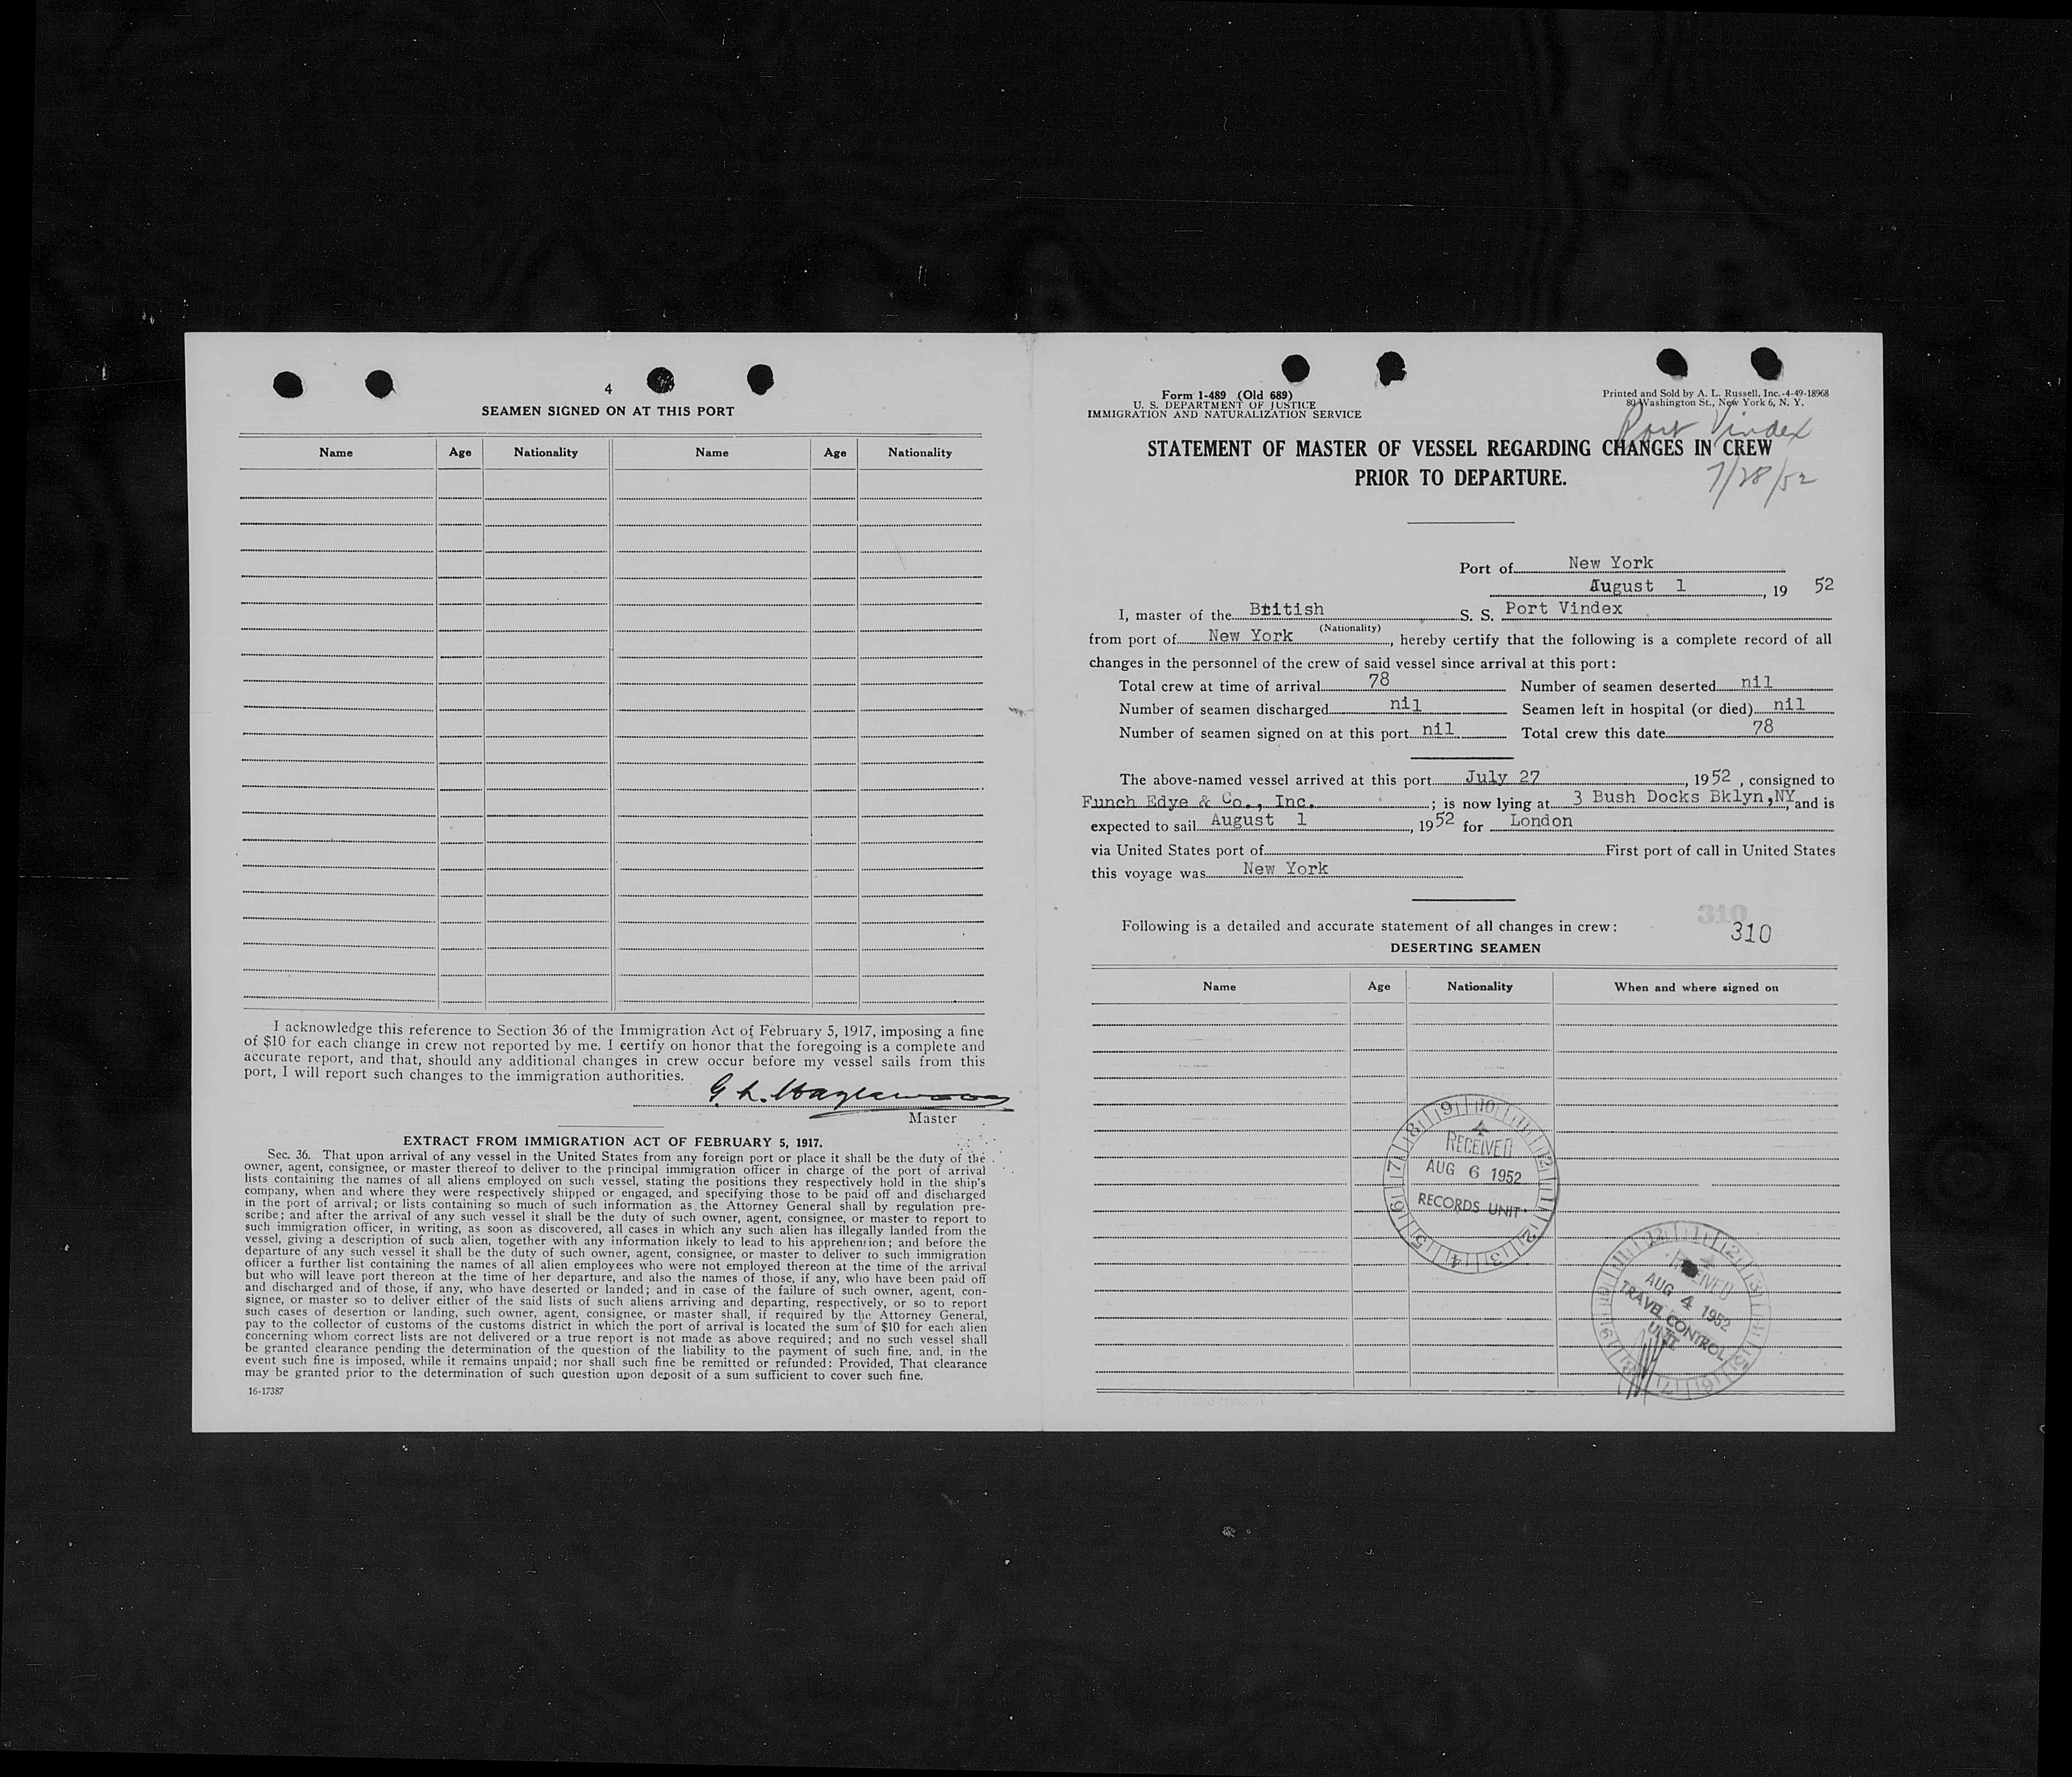 4
SEAMEN SIGNED ON AT THIS PORT
Name Age Nationality Name Age Nationality
I acknowledge this reference to Section 36 of the Immigration Act of February 5, 1917, imposing a fine
of $10 for each change in crew not reported by me. I certify on honor that the foregoing is a complete and
accurate report, and that, should any additional changes in crew occur before my vessel sails from this
port, I will report such changes to the immigration authorities.
Master
EXTRACT FROM IMMIGRATION ACT OF FEBRUARY 5, 1917.
Sec. 36. That upon arrival of any vessel in the United States from any foreign port or place it shall be the duty of the
owner, agent, consignee, or master thereof to deliver to the principal immigration officer in charge of the port of arrival
lists containing the names of all aliens employed on such vessel, stating the positions they respectively hold in the ship's
company, when and where they were respectively shipped or engaged, and specifying those to be paid off and discharged
in the port of arrival; or lists containing so much of such information as the Attorney General shall by regulation pre-
scribe; and after the arrival of any such vessel it shall be the duty of such owner, agent, consignee, or master to report to
such immigration officer, in writing, as soon as discovered, all cases in which any such alien has illegally landed from the
vessel, giving a description of such alien, together with any information likely to lead to his apprehension; and before the
departure of any such vessel it shall be the duty of such owner, agent, consignee, or master to deliver to such immigration
officer a further list containing the names of all alien employees who were not employed thereon at the time of the arrival
but who will leave port thereon at the time of her departure, and also the names of those, if any, who have been paid off
and discharged and of those, if any, who have deserted or landed; and in case of the failure of such owner, agent, con-
signee, or master so to deliver either of the said lists of such aliens arriving and departing, respectively, or so to report
such cases of desertion or landing, such owner, agent, consignee, or master shall, if required by the Attorney General,
pay to the collector of customs of the customs district in which the port of arrival is located the sum of $10 for each alien
concerning whom correct lists are not delivered or a true report is not made as above required; and no such vessel shall
be granted clearance pending the determination of the question of the liability to the payment of such fine, and, in the
event such fine is imposed, while it remains unpaid; nor shall such fine be remitted or refunded: Provided, That clearance
may be granted prior to the determination of such question upon deposit of a sum sufficient to cover such fine.
16-17387
Form 1-489 (Old 689)
U. S. DEPARTMENT OF JUSTICE
IMMIGRATION AND NATURALIZATION SERVICE
Printed and Sold by A. L. Russell, Inc.-4-49-18968
80 Washington St., New York 6, N. Y.
Port Vindex
STATEMENT OF MASTER OF VESSEL REGARDING CHANGES IN CREW
PRIOR TO DEPARTURE.
7/28/52
Port of New York
August 1, 19 52
I, master of the British S. S. Port Vindex
(Nationality)
from port of New York, hereby certify that the following is a complete record of all
changes in the personnel of the crew of said vessel since arrival at this port:
Total crew at time of arrival 78 Number of seamen deserted nil
Number of seamen discharged nil Seamen left in hospital (or died) nil
Number of seamen signed on at this port nil Total crew this date 78
The above-named vessel arrived at this port July 27, 1952, consigned to
Funch Edye & Co., Inc.; is now lying at 3 Bush Docks Bklyn,NY, and is
expected to sail August 1, 1952 for London
via United States port of First port of call in United States
this voyage was New York
310
Following is a detailed and accurate statement of all changes in crew:
310
DESERTING SEAMEN
Name Age Nationality When and where signed on
9 10 11 12 1 2 3 4 5 6 7 8
4
RECEIVED
AUG 6 1952
RECORDS UNIT
12 1 2 3 4 5 6 7 8 9 10 11
RECEIVED
AUG 4 1952
TRAVEL CONTROL
UNIT